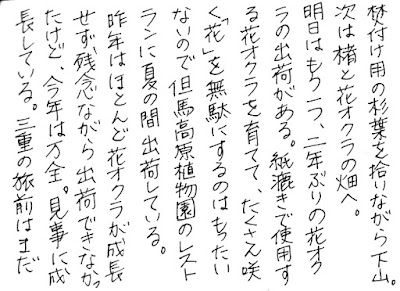 焚付け用の杉葉を拾いながら下山。
次は楮と花オクラの畑へ。
明日はもう一つ、二年ぶりの花オク
ラの出荷がある。紙漉きで使用す
る花オクラを育てて、たくさん咲
く「花」を無駄にするのはもったい
ないので但馬高原植物園のレスト
ランに夏の間出荷している。
昨年はほとんど花オクラが成長
せず、残念ながら出荷できなかっ
たけど、今年は万全。見事に成
長している。三重の旅前はまだ